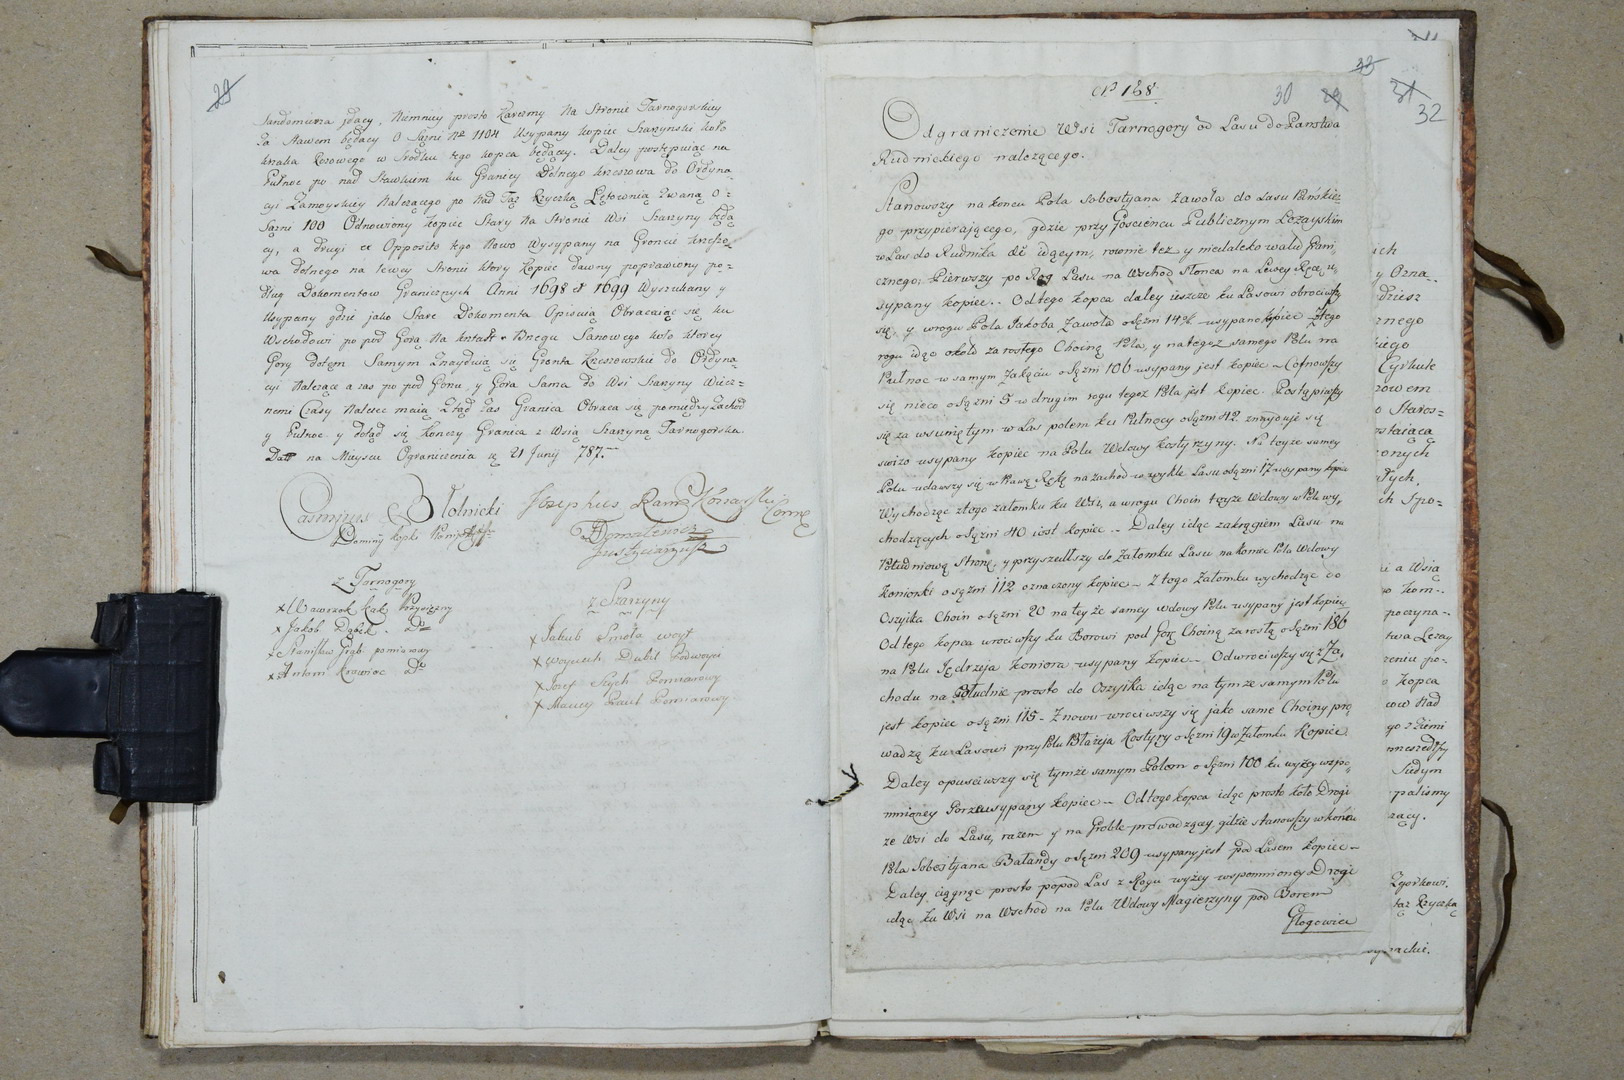 29
Sandomirza jdący, Niemniey prosto Karczmy Na Stronie Tarnogorskiey
Za Stawem będący O Sązni Nº 1104 Usypany kopiec Szarzynski koło
krzaka Łozowego w Srodku tego kopca będący. Daley postępuiąc na
Pułnoc po nad Stawkiem ku Granicy Dolnego krzeszowa do Ordyna=
cyi Zamoyskiey Nalezącego po Nad Tąz Rzyczką Łętownią Zwaną O=
Sązni 100 Odnowiony kopiec Stary Na Stronie Wsi Szarzyny będą
cy, a drugi ex Opposito tego Nowo Wysypany na Groncie krzeszo=
wa dolnego na lewey Stronie ktory kopiec dawny poprawiony po=
dług Dokumentow Granicznych Anni 1698 et 1699 Wyszukany y
Usypany gdzie jako Stare Dokumenta Opiewią Obracaiąc się ku
Wschodowi po pod Górą Na kształt Brzegu Sanowego koło ktorey
Gory dołem Samym Znayduią się Gronta Krzeszowskie do Ordyna=
cyi Nalezące a zas po pod Gonu, y Góra Sama do Wsi Szarzyny Wiecz=
nemi Czasy Nalezec maią Ztąd Zas Granica Obraca się pomiędzy Zachod
y Pułnoc y dotąd się konczy Granica z Wsią Szarzyną Tarnogorska.
Datt na Mieyscu Ograniczenia d 21 Junij 787.
Casimirus Błotnicki
Josephus Konarski
Z Tarnogory
x Wawrzek Kak Przysięzny
x Jakob Dąbek. Dº
x Stanisław Grab pomiarowy
x Antoni Krawiec Dº
z Szarzyny
x Jakub Smoła woyt
x Woyciech Dubil Podwoyci
x Jozef Szych Pomiarowy
x Maciey Paul Pomiarowy
33
Nº 168.
30 29 31
32
Odgraniczenie Wsi Tarnogory od Lasu do Panstwa
Rudnickiego nalezącego.
Stanowszy na koncu Pola Sobestyana Zawoła do Lasu Pańskie=
go przypierającego, gdzie przy Gosciencu Publicznym Lezayskim
w Las do Rudnika idącym, rownie tez y niedaleko wału Grani
cznego; Pierwszy po Rog Lasu na Wschod Słonca na Lewey Ręce u,
sypany kopiec.. Od tego kopca daley ieszcze ku Lasowi obrociwszy
się, y w rogu Pola Jakoba Zawoła o Sązni 14 2/4 usypano kopiec z tego
rogu idąc około zarosłego Choiną Pola, y na tegoz samego Polu na
Pułnoc w samym Zakęciu o Sązni 106 usypany jest kopiec – Cofnowszy
się nieco o Sązni 5 w drugim rogu tegoz Pola jest kopiec. Postąpiwszy
się za wsunię tym w Las polem ku Pułnocy o Sązni 42. znayduje się
swizo usypany kopiec na Polu Wdowy Kostyrzyny. Na teyze samey
Polu udawszy się w Prawą Rękę na zachod w cyrkle Lasu o Sązni 17 usypany kopiec
Wychodząc z tego załomku ku Wsi, a w rogu Choin teyze Wdowy w Pole wy,
chodzących o Sązni 40 iest kopiec – Daley idąc zakrągiem Lasu na
Południową Stronę, y przyszedłszy do Załomku Lasu na koniec Pola Wdowy
Koniorki o sązni 112 oznaczony kopiec – Z tego Załomku wychodząc do
Oszyika Choin o sązni 20 na tey ze samey wdowy Polu usypany jest kopiec
Od tego kopca wrociwszy ku Borowi pod Gorę Choiną zarosłą o Sązni 186
na Polu Jędrzeja Koniora usypany kopiec – Odwrociwszy się z Za,
chodu na południe prosto do Oszyika idąc na tymze samym Polu
jest kopiec o Sązni 115 – Znowu wrociwszy się jako same Choiny pro
wadzą ku Lasowi przy Polu Błażeja Kostyry o Sązni 19 w Załomku Kopiec.
Daley opusciwszy się tymze samym Polem o Sązni 100 ku wyzey wspo=
mnioney Gorze usypany kopiec – Od tego kopca idąc prosto koło Drogi
ze Wsi do Lasu, razem y na Groble prowadzący, gdzie stanowszy w końcu
Pola Sobestyana Bałandy o Sązni 209 usypany jest pod Lasem kopiec –
Daley ciągnąc prosto popod Las z Rogu wyżey wspomnioney Drogi
idąc ku Wsi na Wschod na Polu Wdowy Magierzyny pod Borem
Głogowiec
ych
y Ozna..
dziesz
znego
kiego
Cyrkule
rowem
o Staros=
staiącą
onych
dych.
ch Spo=
a Wsią
Kom..
poczyna=
twa Lezay
zeniu po=
kopca
cow Nad
go z Ziemi
mieszedszy
Siedym
palismy
zący.
Zgorkowi.
taz Rzyczką